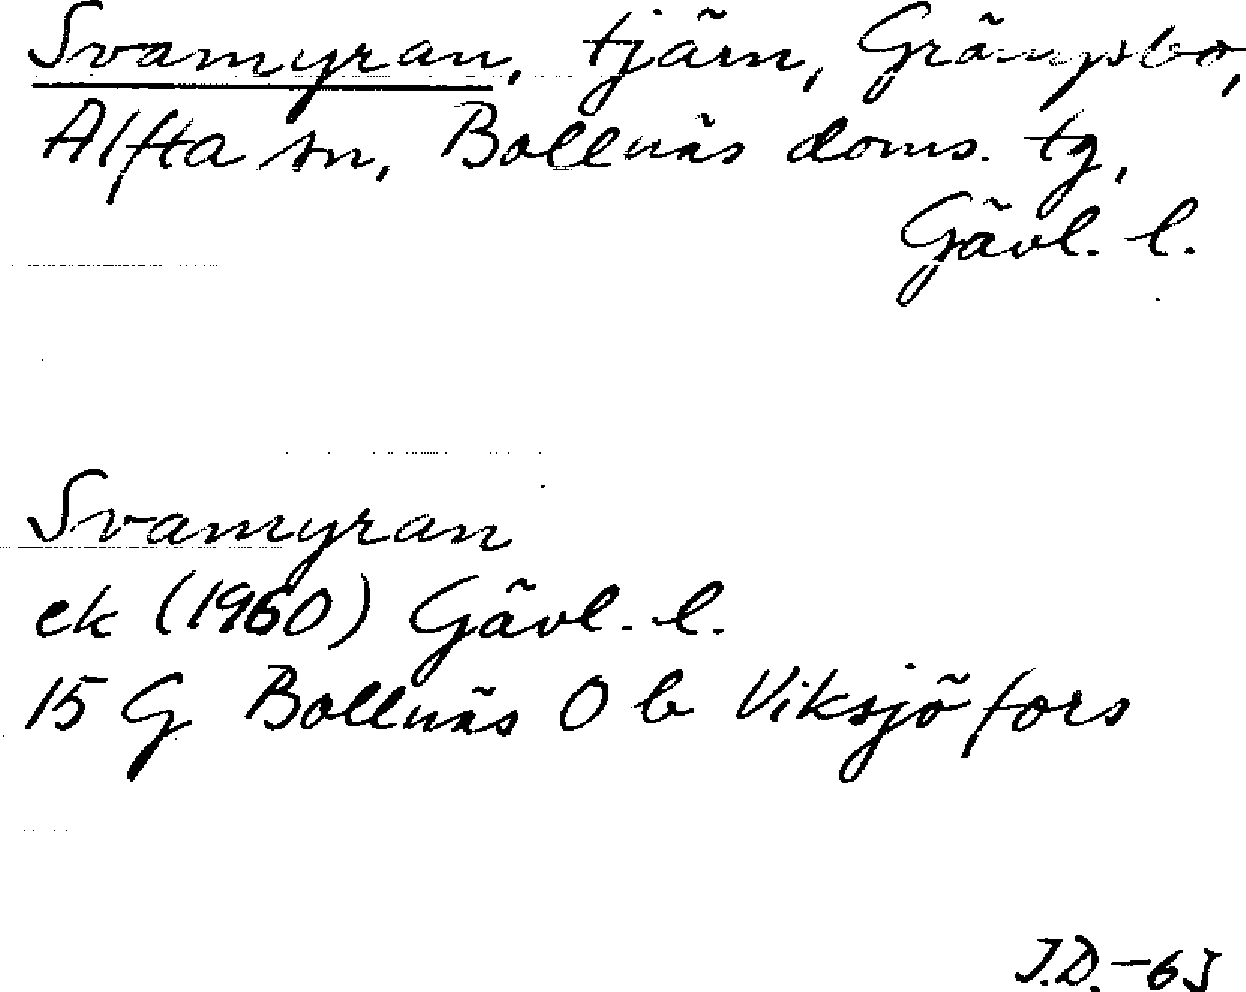 Svamyran, tjärn, Grängsbo,
Alfta sn, Bollnäs doms. tg,
Gävl. l.
Svamyran
ek (1960) Gävl. l.
15 G Bollnäs O b Viksjöfors
J.D. -65